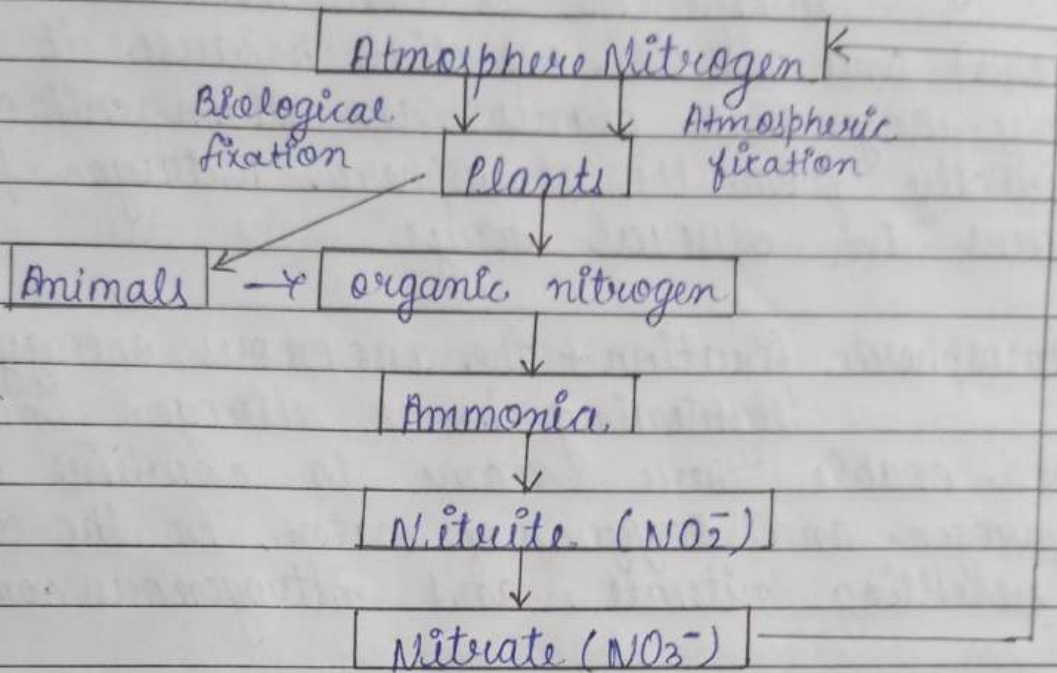 Atmosphere Nitrogen
Biological
fixation
Atmospheric
fixation
Plants
Animals
organic nitrogen
Ammonia
Nitrite (NO₂⁻)
Nitrate (NO₃⁻)